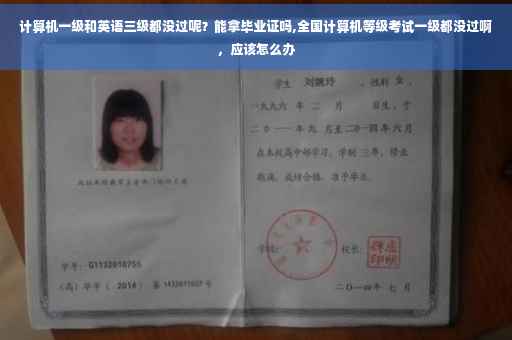 计算机一级和英语三级都没过呢？能拿毕业证吗,全国计算机等级考试一级都没过啊
，应该怎么办
学生 刘婉玲 ，性别 女 ，
一九九六 年 二 月 日生，于
二〇一一年九 月至二〇一四年六月
在本校高中部学习，学制 三年，修业
期满，成绩合格，准予毕业。
学号：G1132010755
学校： 校长：
(高) 毕字 ( 2014 ) 第 1432011027 号
二〇一四年 七 月